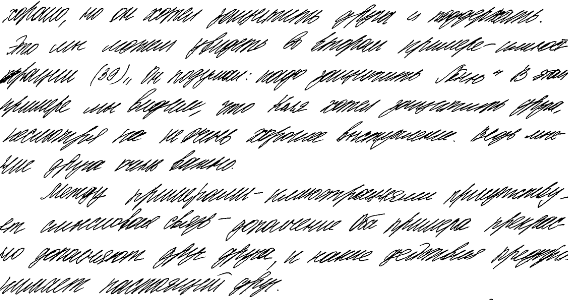 хорошо, но он хотел защитить друга и поддержать.
Это мы можем увидеть во втором примере-иллюст
рации (39) „ Он подумал: надо защитить Лёню" В этом
примере мы видим, что Коля хотел защитить друга,
несмотря на не очень хорошее выступление. Ведь мне-
ние друга очень важно.
Между примерами-иллюстрациями присутству-
ет смысловая связь - дополнение. Оба примера прекрас-
но дополняют друг друга, и какие действия предпри-
нимает настоящий друг.